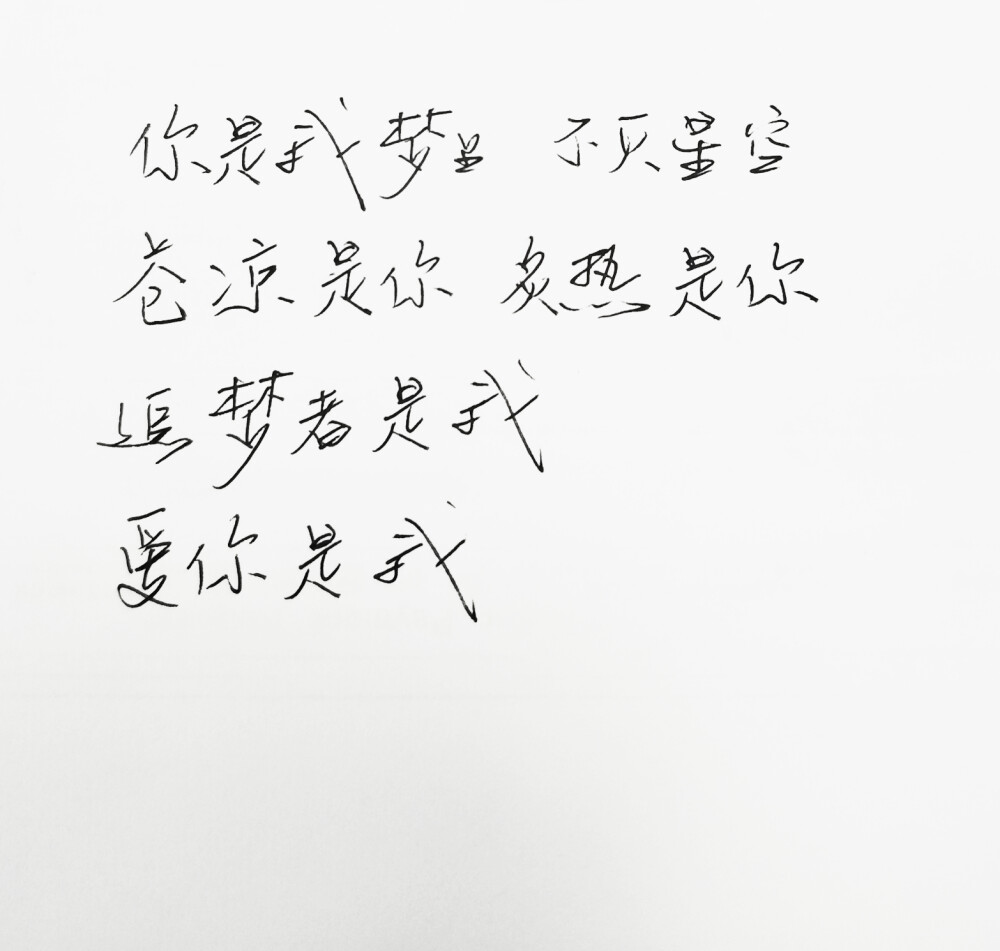 你是我梦里 不灭星空
苍凉是你 炙热是你
追梦者是我
爱你是我